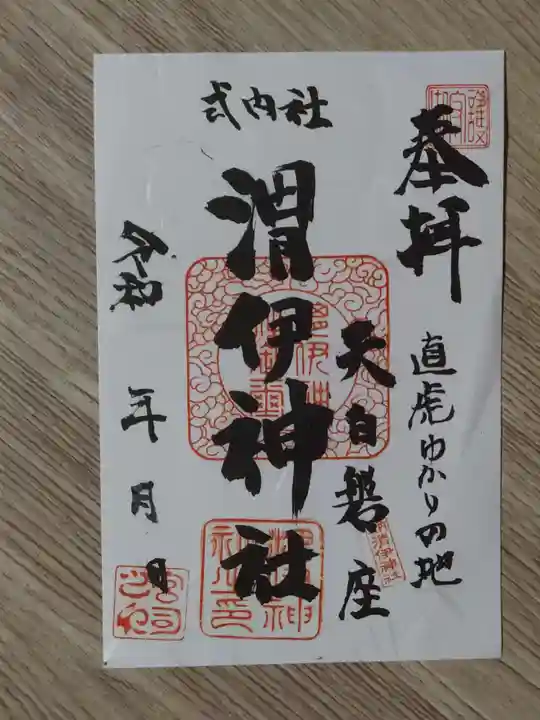 奉拝
直虎ゆかりの地
式内社
渭伊神社
天白磐座
令和 年 月 日
宮司之印